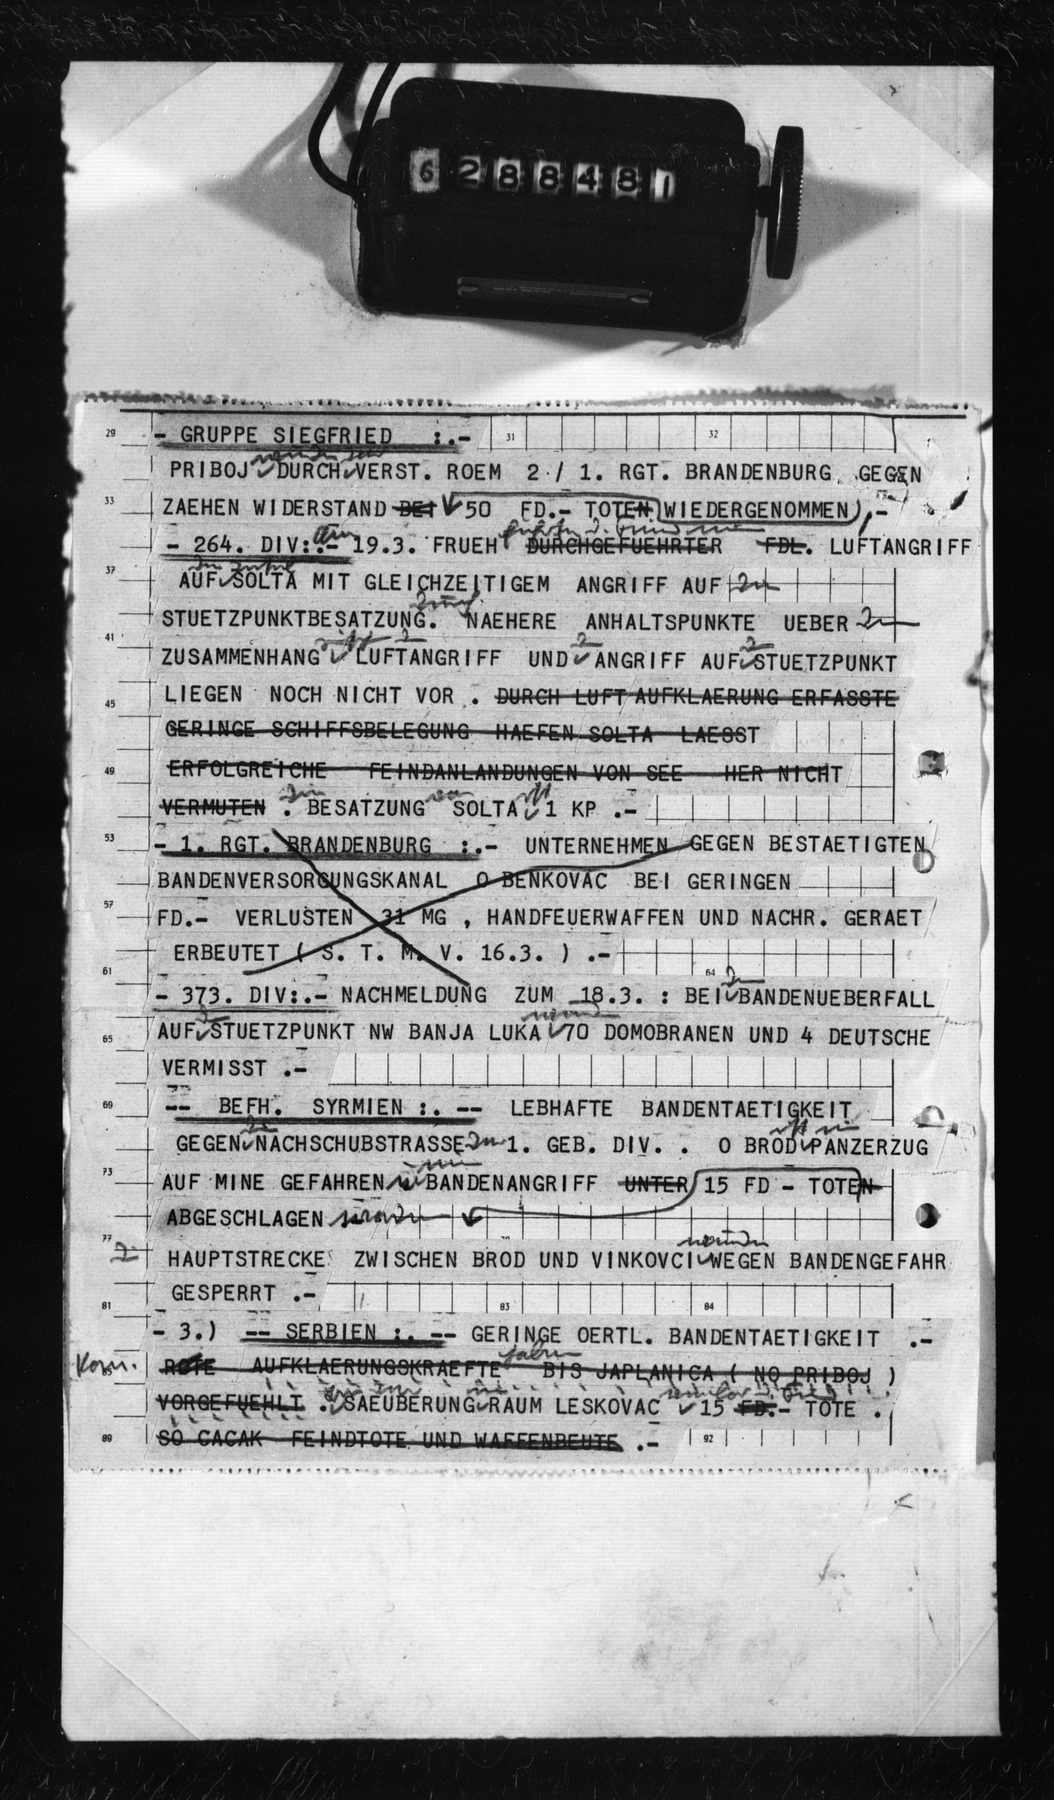 6288481
29 31 32
- GRUPPE SIEGFRIED :.-
PRIBOJ DURCH VERST. ROEM 2 / 1. RGT. BRANDENBURG GEGEN
33 ZAEHEN WIDERSTAND BEI 50 FD.- TOTEN WIEDERGENOMMEN .-
- 264. DIV:.- 19.3. FRUEH DURCHGEFUEHRTER FDL. LUFTANGRIFF
37 AUF SOLTA MIT GLEICHZEITIGEM ANGRIFF AUF
STUETZPUNKTBESATZUNG. NAEHERE ANHALTSPUNKTE UEBER
41 ZUSAMMENHANG LUFTANGRIFF UND ANGRIFF AUF STUETZPUNKT
45 LIEGEN NOCH NICHT VOR . DURCH LUFTAUFKLAERUNG ERFASSTE
GERINGE SCHIFFSBELEGUNG HAEFEN SOLTA LAESST
49 ERFOLGREICHE FEINDANLANDUNGEN VON SEE HER NICHT
VERMUTEN . BESATZUNG SOLTA 1 KP .-
53 - 1. RGT. BRANDENBURG :.- UNTERNEHMEN GEGEN BESTAETIGTEN
BANDENVERSORGUNGSKANAL O BENKOVAC BEI GERINGEN
57 FD.- VERLUSTEN 31 MG , HANDFEUERWAFFEN UND NACHR. GERAET
ERBEUTET ( S. T. M. V. 16.3. ) .-
61 64
- 373. DIV:.- NACHMELDUNG ZUM 18.3. : BEI BANDENUEBERFALL
65 AUF STUETZPUNKT NW BANJA LUKA 70 DOMOBRANEN UND 4 DEUTSCHE
VERMISST .-
69 -- BEFH. SYRMIEN :. -- LEBHAFTE BANDENTAETIGKEIT
GEGEN NACHSCHUBSTRASSE 1. GEB. DIV. . O BROD PANZERZUG
73 AUF MINE GEFAHREN BANDENANGRIFF UNTER 15 FD - TOTEN
ABGESCHLAGEN
77 HAUPTSTRECKE ZWISCHEN BROD UND VINKOVCI WEGEN BANDENGEFAHR
GESPERRT .-
81 83 84
- 3.) -- SERBIEN :. -- GERINGE OERTL. BANDENTAETIGKEIT .-
85 ROTE AUFKLAERUNGSKRAEFTE BIS JAPLANICA ( NO PRIBOJ )
VORGEFUEHLT . SAEUBERUNG RAUM LESKOVAC 15 FD.- TOTE .
89 SO CACAK FEINDTOTE UND WAFFENBEUTE .- 92